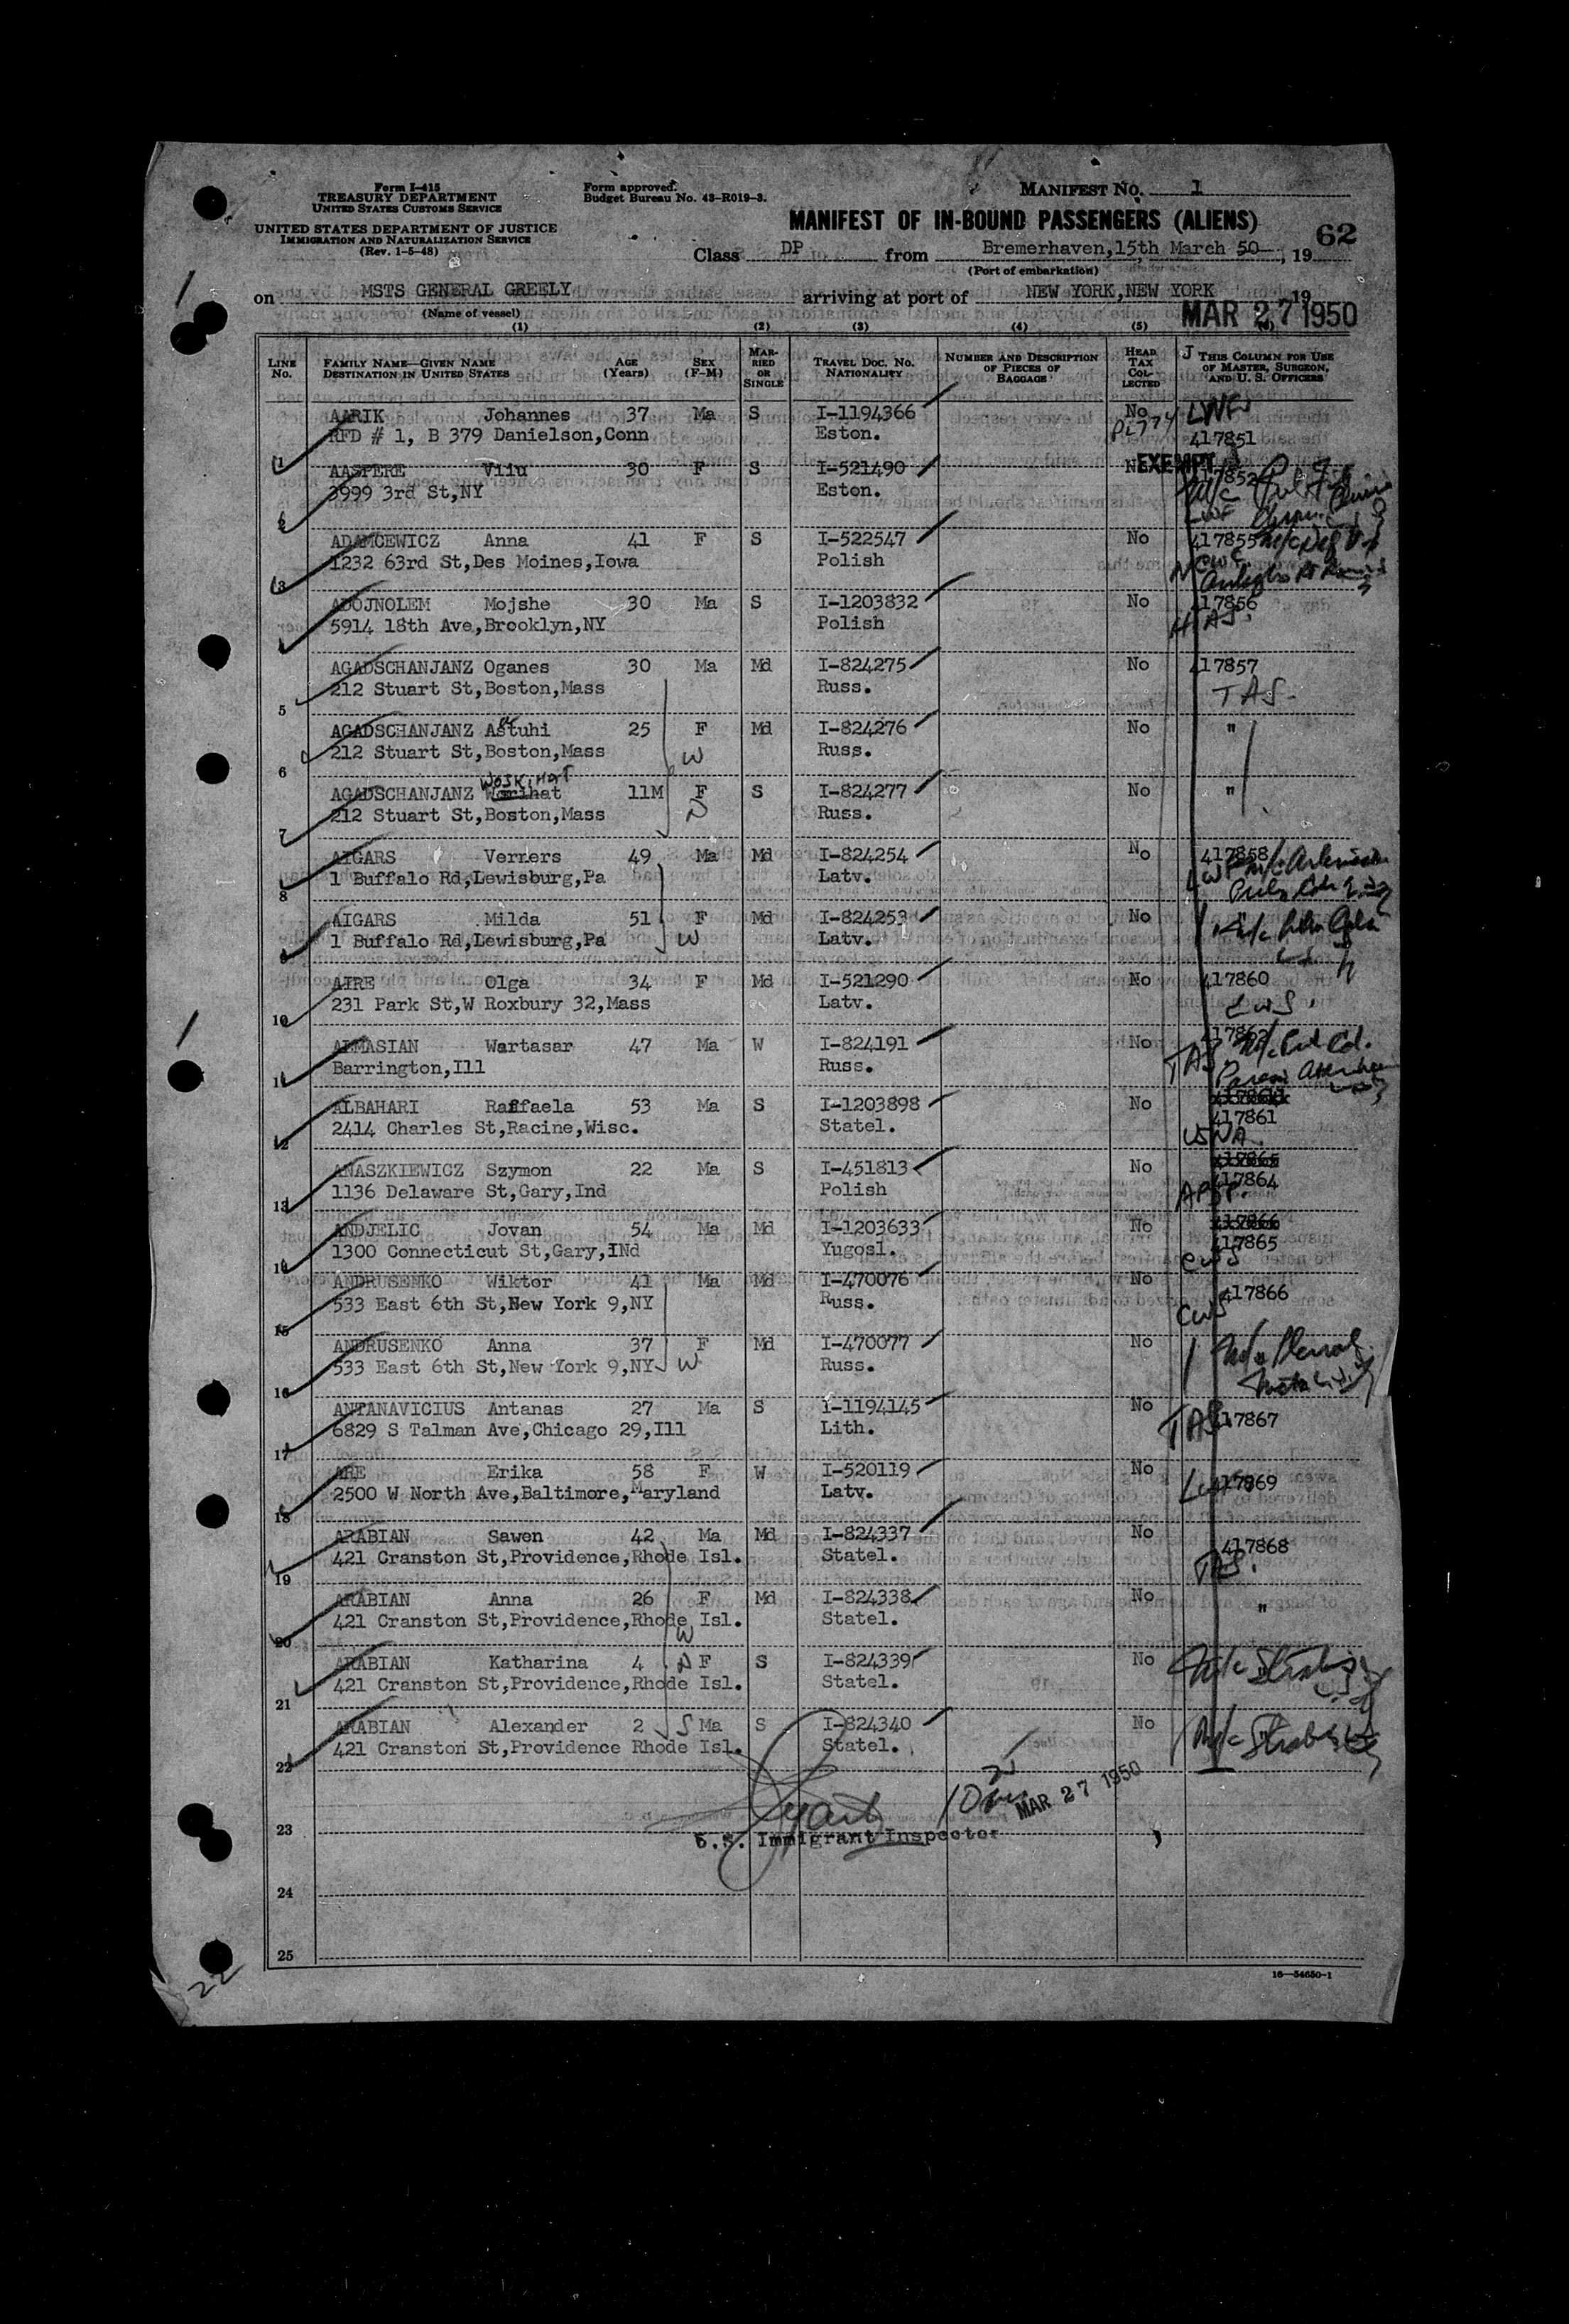 Form I-415
TREASURY DEPARTMENT
UNITED STATES CUSTOMS SERVICE
UNITED STATES DEPARTMENT OF JUSTICE
IMMIGRATION AND NATURALIZATION SERVICE
(Rev. 1-5-48)
Form approved.
Budget Bureau No. 43-R019-3.
MANIFEST NO. 1
MANIFEST OF IN-BOUND PASSENGERS (ALIENS)
62
Class DP from Bremerhaven,15th March 50, 19
(Port of embarkation)
on MSTS GENERAL GREELY arriving at port of NEW YORK,NEW YORK 19
(Name of vessel)
MAR 27 1950
(1) (2) (3) (4) (5)
LINE No. FAMILY NAME—GIVEN NAME DESTINATION IN UNITED STATES AGE (Years) SEX (F-M) MARRIED OR SINGLE TRAVEL DOC. NO. NATIONALITY NUMBER AND DESCRIPTION OF PIECES OF BAGGAGE HEAD TAX COLLECTED THIS COLUMN FOR USE OF MASTER, SURGEON, AND U. S. OFFICERS
AARIK Johannes 37 Ma S I-1194366 No LWF
RFD # 1, B 379 Danielson,Conn Eston. 417851
1
AASPERE Viiu 30 F S I-521490 No EXEMPT 417852
3999 3rd St,NY Eston.
2 LWF
ADAMCEWICZ Anna 41 F S I-522547 No 417855
1232 63rd St,Des Moines,Iowa Polish NCWC
3
ADOJNOLEM Mojshe 30 Ma S I-1203832 No 417856
5914 18th Ave,Brooklyn,NY Polish HIAS.
4
AGADSCHANJANZ Oganes 30 Ma Md I-824275 No 417857
212 Stuart St,Boston,Mass Russ. TAS.
5
AGADSCHANJANZ Astuhi 25 F Md I-824276 No "
212 Stuart St,Boston,Mass Russ. W
6
WOSKIHAT
AGADSCHANJANZ 11M F S I-824277 No "
212 Stuart St,Boston,Mass Russ. D
7
AIGARS Verners 49 Ma Md I-824254 No 417858
1 Buffalo Rd,Lewisburg,Pa Latv. LWF
8
AIGARS Milda 51 F Md I-824253 No
1 Buffalo Rd,Lewisburg,Pa W Latv.
9
AIRE Olga 34 F Md I-521290 No 417860
231 Park St,W Roxbury 32,Mass Latv. CWS.
10
ALMASIAN Wartasar 47 Ma W I-824191 No
Barrington,Ill Russ. TAS
11
ALBAHARI Raffaela 53 Ma S I-1203898 No 417861
2414 Charles St,Racine,Wisc. Statel. USNA.
12
ANASZKIEWICZ Szymon 22 Ma S I-451813 No 417865
1136 Delaware St,Gary,Ind Polish 417864
13
ANDJELIC Jovan 54 Ma Md I-1203633 No 417866
1300 Connecticut St,Gary,INd Yugosl. 417865
14 CWS
ANDRUSENKO Wiktor 41 Ma Md I-470076 No 417866
533 East 6th St,New York 9,NY Russ. CWS
15
ANDRUSENKO Anna 37 F Md I-470077 No
533 East 6th St,New York 9,NY W Russ.
16
ANTANAVICIUS Antanas 27 Ma S I-1194145 No 417867
6829 S Talman Ave,Chicago 29,Ill Lith. TAS
17
ARE Erika 58 F W I-520119 No 417869
2500 W North Ave,Baltimore,Maryland Latv.
18
ARABIAN Sawen 42 Ma Md I-824337 No 417868
421 Cranston St,Providence,Rhode Isl. Statel. TAS.
19
ARABIAN Anna 26 F Md I-824338 No "
421 Cranston St,Providence,Rhode Isl. W Statel.
20
ARABIAN Katharina 4 D F S I-824339 No
421 Cranston St,Providence,Rhode Isl. Statel.
21
ARABIAN Alexander 2 S Ma S I-824340 No
421 Cranston St,Providence Rhode Isl. Statel.
22
MAR 27 1950
U.S. Immigrant Inspector
23
24
25
22
16—54650-1